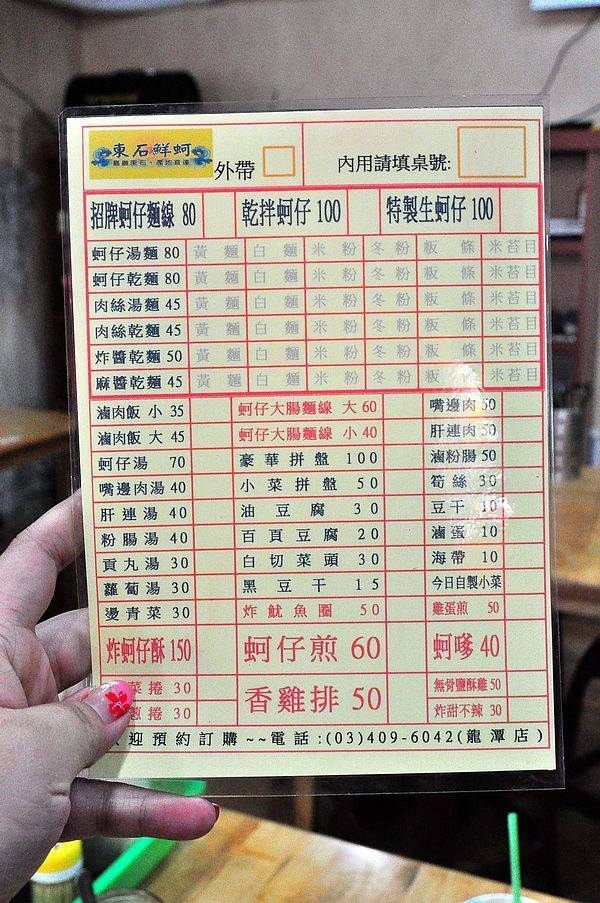 東石鮮蚵
外帶 內用請填桌號:
招牌蚵仔麵線 80 乾拌蚵仔 100 特製生蚵仔 100
蚵仔湯麵 80 黃麵 白麵 米粉 冬粉 粄條 米苔目
蚵仔乾麵 80 黃麵 白麵 米粉 冬粉 粄條 米苔目
肉絲湯麵 45 黃麵 白麵 米粉 冬粉 粄條 米苔目
肉絲乾麵 45 黃麵 白麵 米粉 冬粉 粄條 米苔目
炸醬乾麵 50 黃麵 白麵 米粉 冬粉 粄條 米苔目
麻醬乾麵 45 黃麵 白麵 米粉 冬粉 粄條 米苔目
滷肉飯 小 35 蚵仔大腸麵線 大 60 嘴邊肉 50
滷肉飯 大 45 蚵仔大腸麵線 小 40 肝連肉 50
蚵仔湯 70 豪華拼盤 100 滷粉腸 50
嘴邊肉湯 40 小菜拼盤 50 筍絲 30
肝連湯 40 油豆腐 30 豆干 10
粉腸湯 40 百頁豆腐 20 滷蛋 10
貢丸湯 30 白切菜頭 30 海帶 10
蘿蔔湯 30 黑豆干 15 今日自製小菜
燙青菜 30 炸魷魚圈 50 雞蛋煎 50
炸蚵仔酥 150 蚵仔煎 60 蚵嗲 40
菜捲 30 香雞排 50 無骨鹽酥雞 50
蔥捲 30 炸甜不辣 30
迎預約訂購~~電話:(03)409-6042(龍潭店)